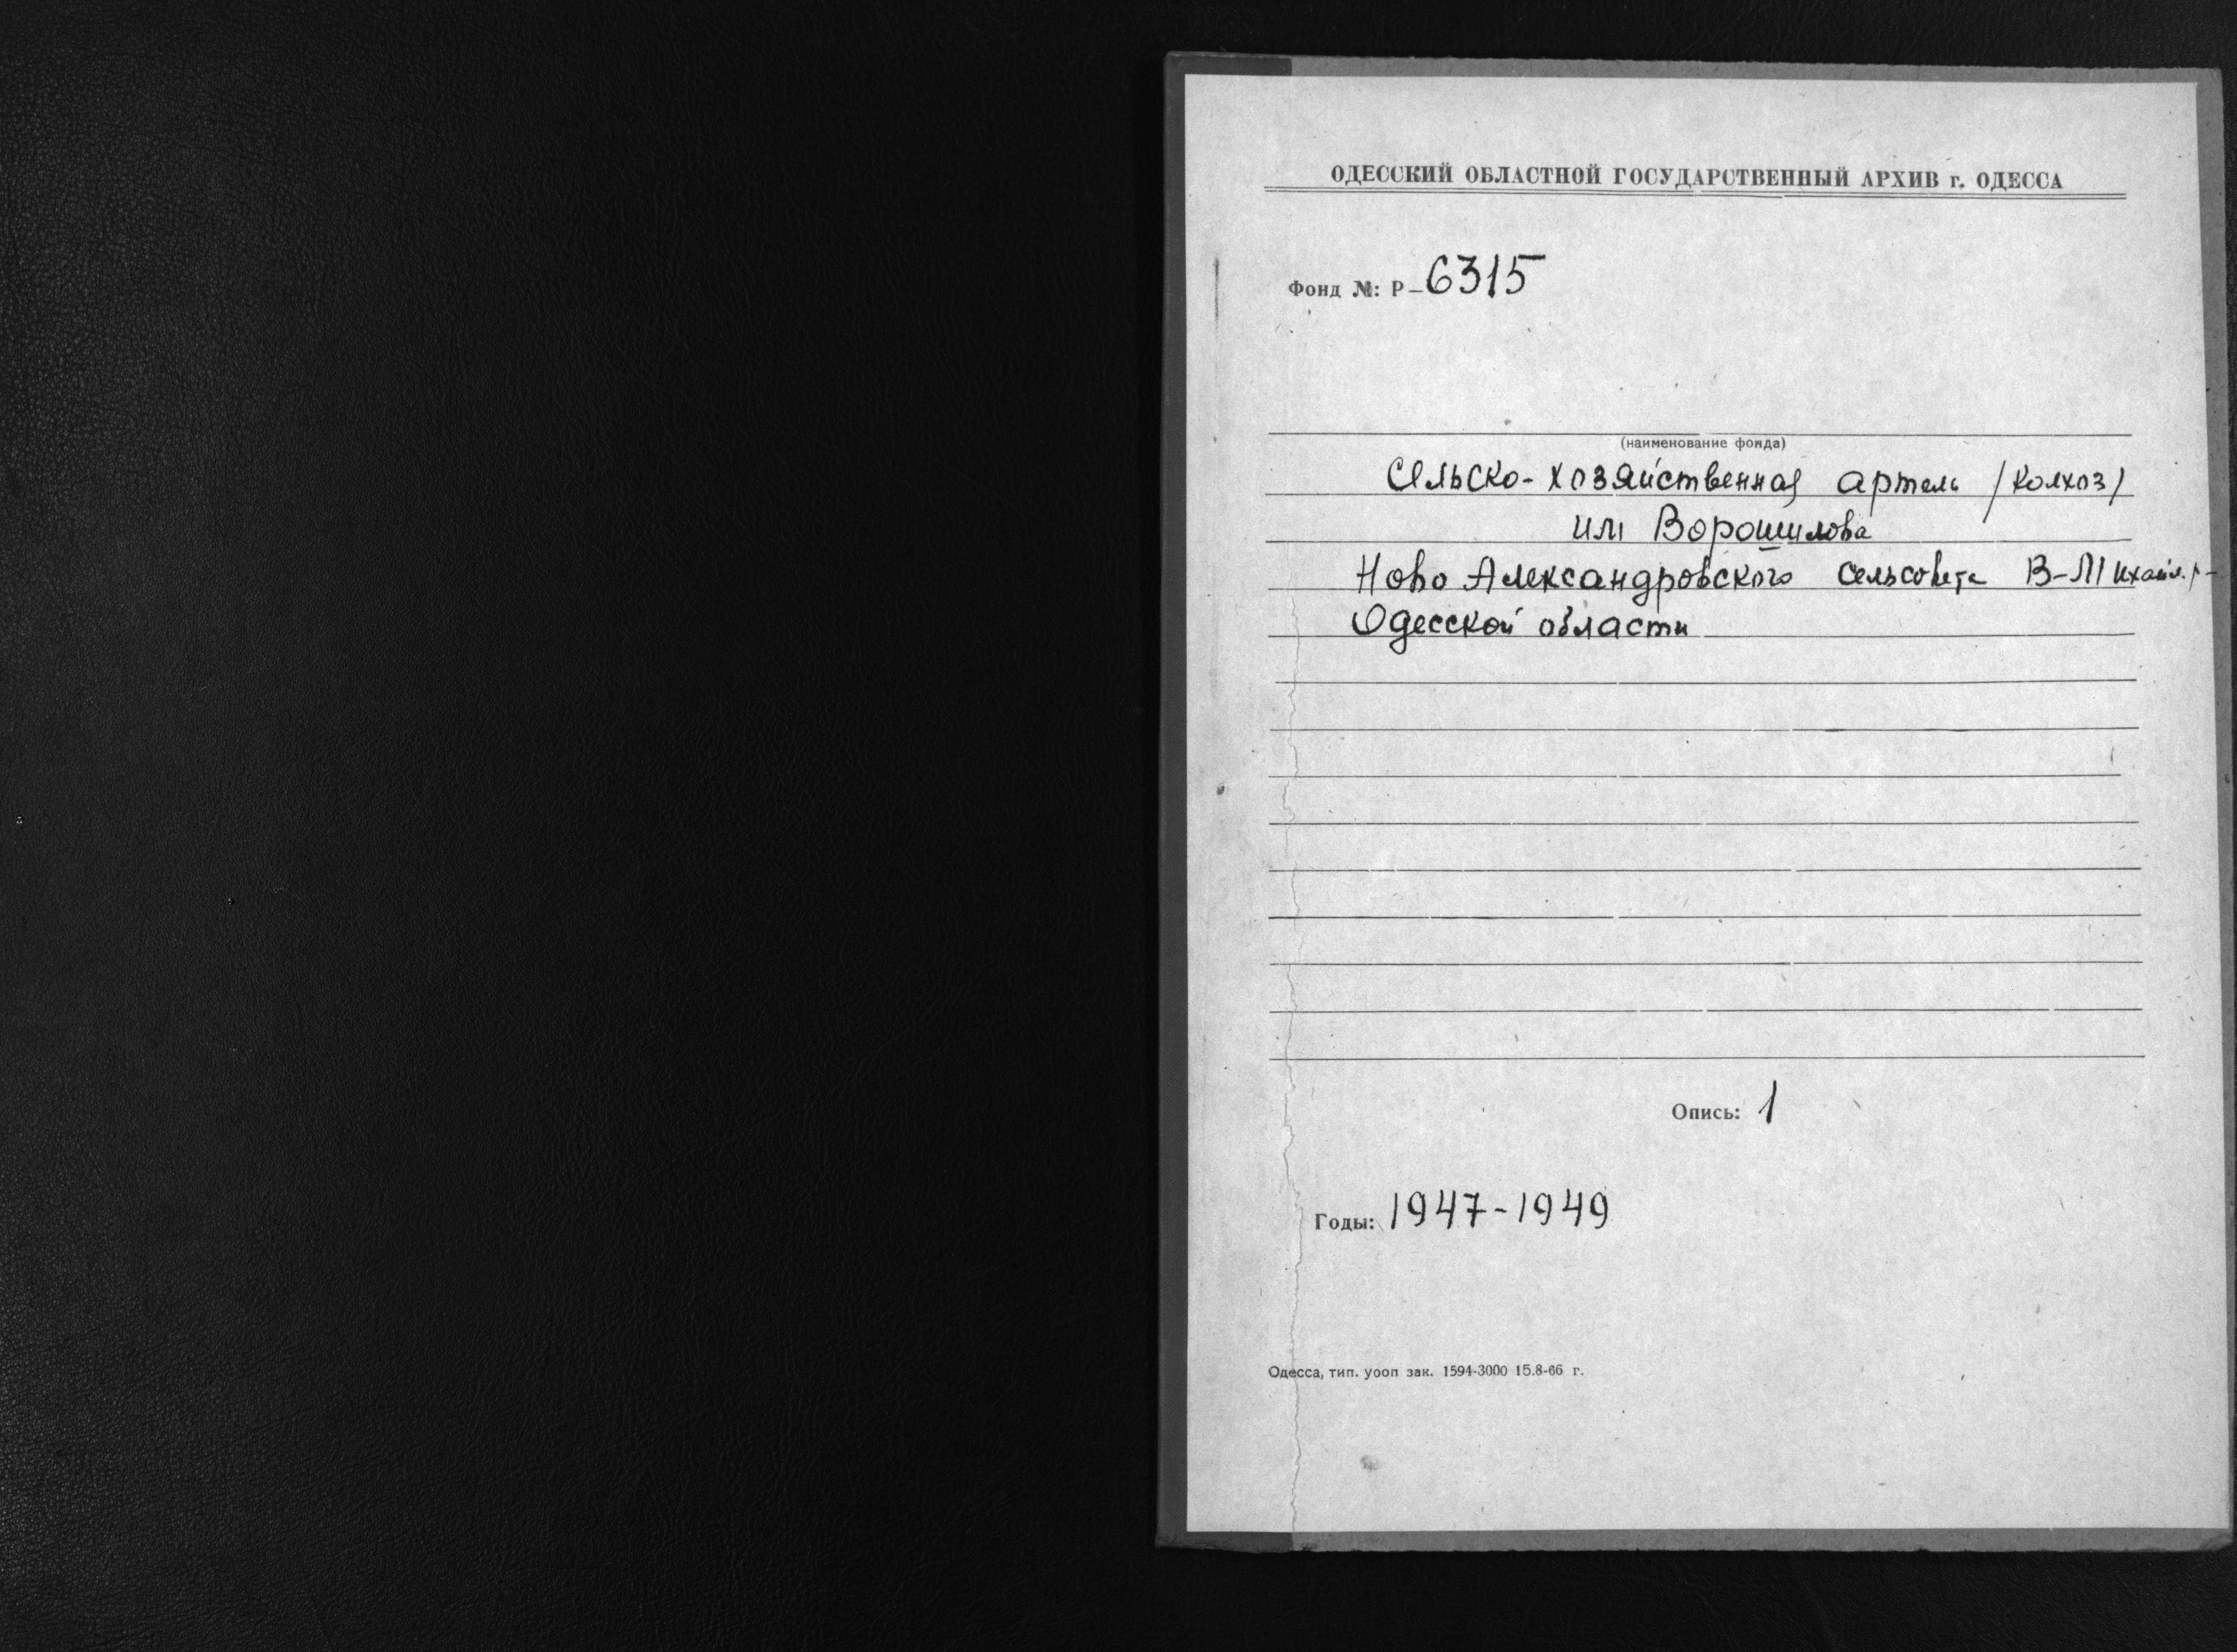 ОДЕССКИЙ ОБЛАСТНОЙ ГОСУДАРСТВЕННЫЙ АРХИВ г. ОДЕССА
Фонд №: Р-6315
(наименование фонда)
Сельско-хозяйственная артель /колхоз/
им Ворошилова
Ново Александровского сельсовета В-Михайл. р-
Одесской области
Опись: 1
Годы: 1947-1949
Одесса, тип. уооп зак. 1594-3000 15.8-66 г.